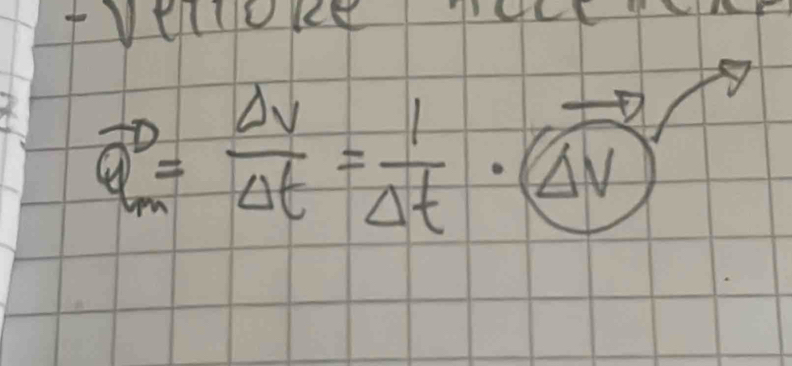 - Vettore
a⃗m = Δv/Δt = 1/Δt · Δv⃗